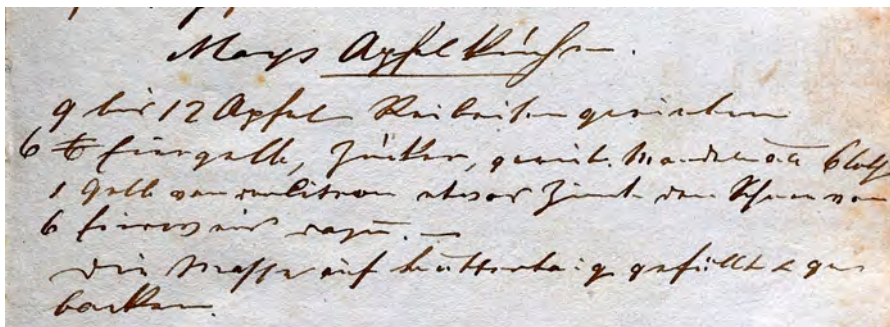 Mays Apfel Kuchen.
9 bis 12 Apfel Reibeisen gerieben
6 Eiergelb, Zucker, gerieb. Mandeln aa 6 Loth
1 Gelb von Citron etwas Zimt den Schnee von
6 Eierweis dazu. —
die Masse auf Butterteig gefüllt & ge
backen.